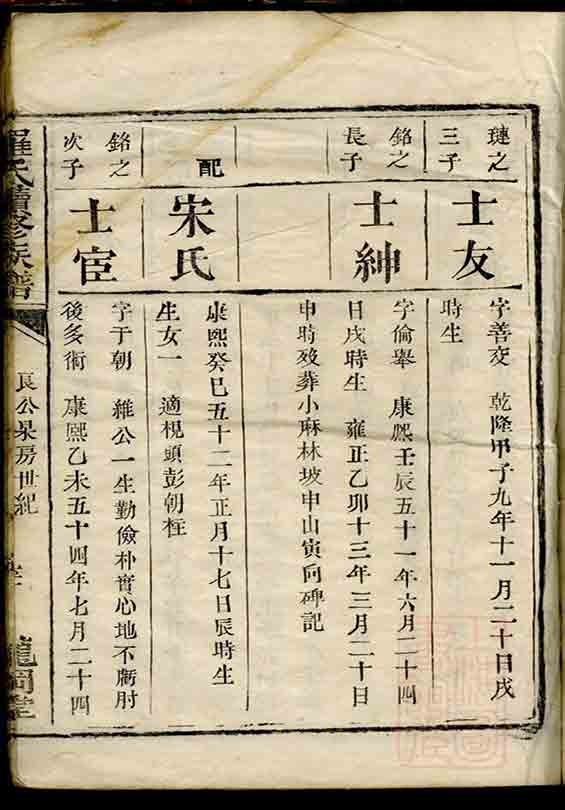 璉之
三子
士友
字善交 乾隆甲子九年十一月二十日戌
時生
銘之
長子
士紳
字倫舉 康熙壬辰五十一年六月二十四
日戌時生 雍正乙卯十三年三月二十日
申時歿葬小麻林坡申山寅向碑記
配
宋氏
康熙癸巳五十二年正月十七日辰時生
生女一 適梘頭彭朝枉
銘之
次子
士宦
字于朝 維公一生勤儉朴實心地不虧肘
後多術 康熙乙未五十四年七月二十四
羅氏續修族譜
良公杲房世紀
龍岡堂